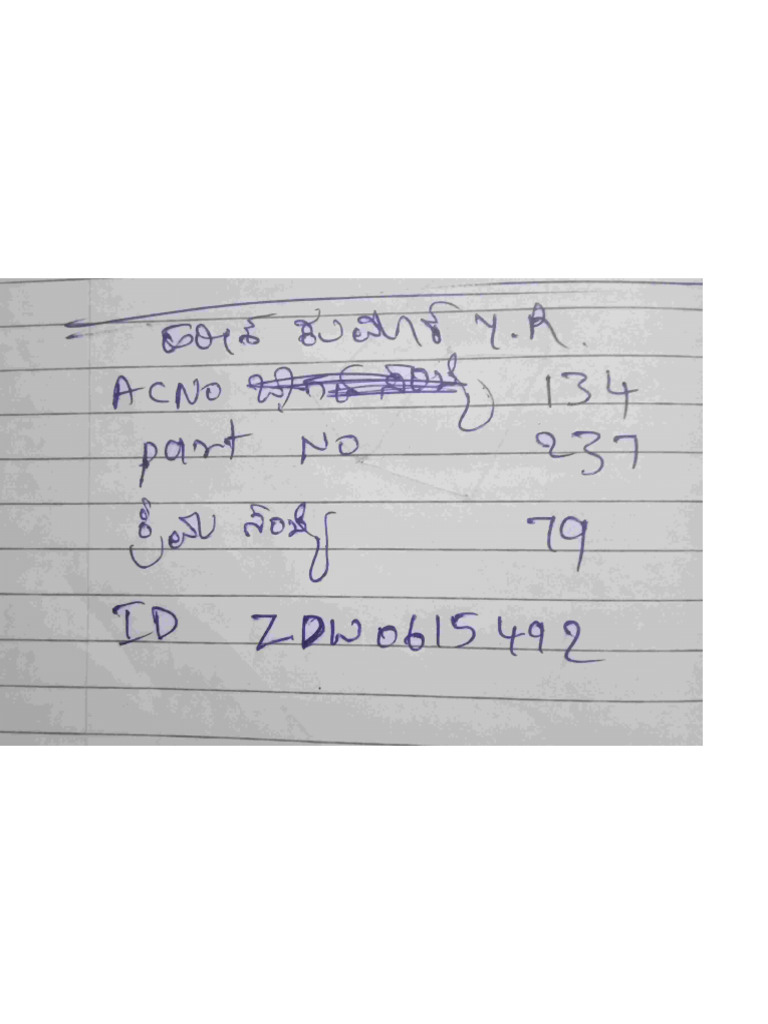 ಕುಮಾರ್ Y.R.
AC NO 134
part NO 237
ಕ್ರಮ ಸಂಖ್ಯೆ 79
ID ZDW0615492